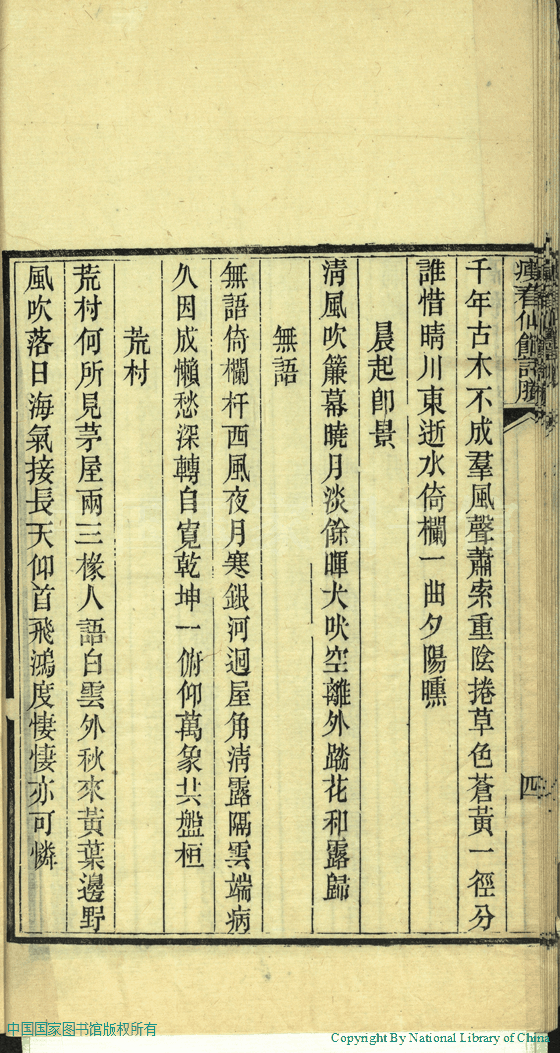 瘦春仙館詩賸
四
千年古木不成羣風聲蕭索重陰捲草色蒼黃一徑分
誰惜晴川東逝水倚欄一曲夕陽曛
晨起卽景
淸風吹簾幕曉月淡餘暉犬吠空離外踏花和露歸
無語
無語倚欄杆西風夜月寒銀河迴屋角淸露隔雲端病
久因成懶愁深轉自寬乾坤一俯仰萬象共盤桓
荒村
荒村何所見茅屋兩三椽人語白雲外秋來黃葉邊野
風吹落日海氣接長天仰首飛鴻度悽悽亦可憐
中国国家图书馆版权所有
Copyright By National Library of China